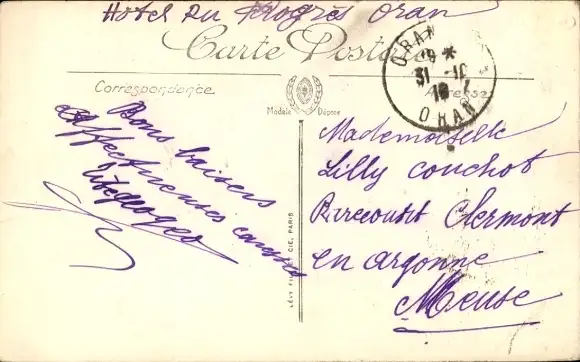 Hotel du Progrès Oran
Carte Postale
ORAN
31 -10
ORAN
Correspondance
Adresse
Modèle Déposé
Bons baisers
affectueuses
Mademoiselle
Lilly Couchot
Rarecourt Clermont
en argonne
Meuse
LÉVY FILS ET CIE, PARIS